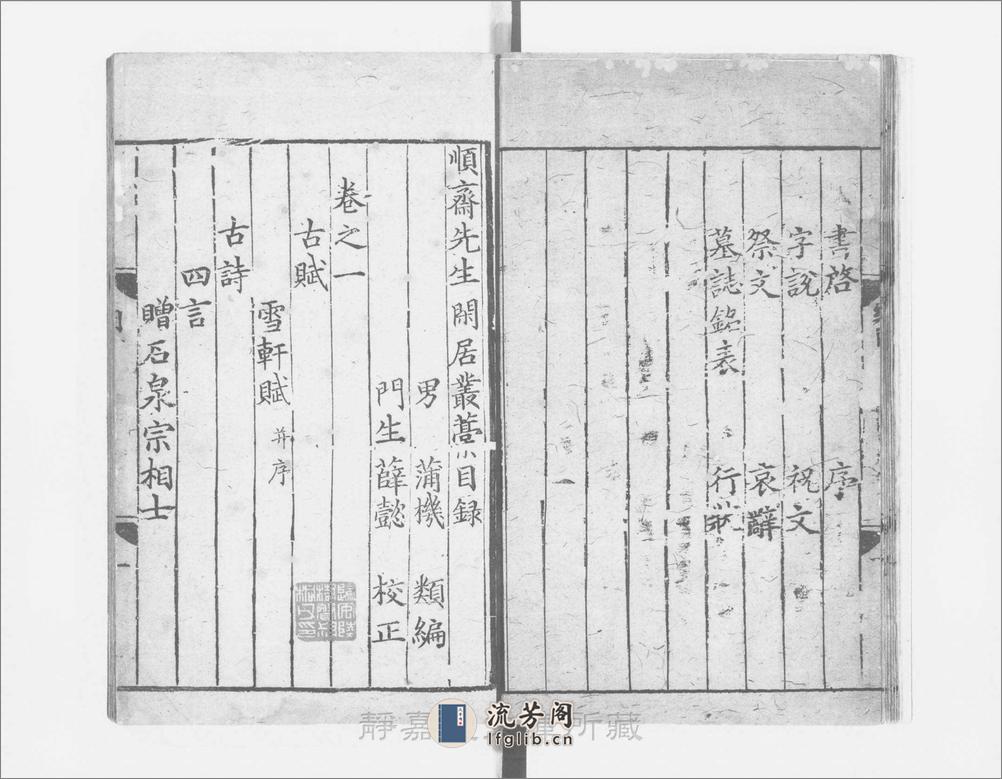 書啓　序
字說　祝文
祭文　哀辭
墓誌銘表　行狀
順齋先生閑居叢藁目録
男　蒲機　類編
門生薛懿　校正
卷之一
古賦
雪軒賦 并序
古詩
四言
贈石泉宗相士
流芳阁
lfglib.cn